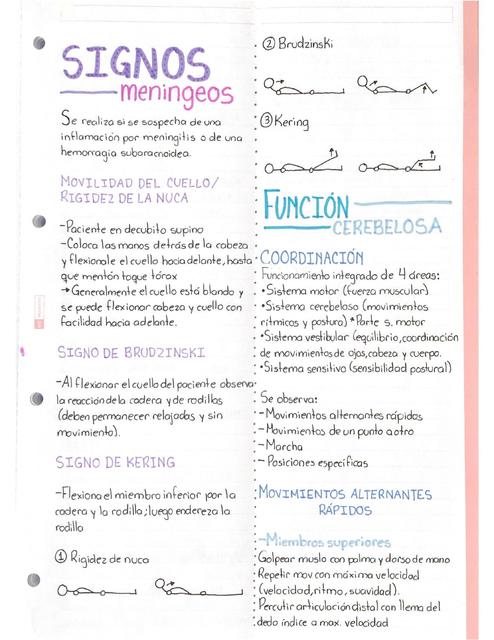 SIGNOS
meningeos
Se realiza si se sospecha de una
inflamación por meningitis o de una
hemorragia subaracnoidea.
MOVILIDAD DEL CUELLO/
RIGIDEZ DE LA NUCA
-Paciente en decubito supino
-Coloca las manos detrás de la cabeza
y flexionale el cuello hacia delante, hasta
que mentón toque tórax
→ Generalmente el cuello está blando y
se puede flexionar cabeza y cuello con
facilidad hacia adelante.
SIGNO DE BRUDZINSKI
-Al flexionar el cuello del paciente observa
la reacción de la cadera y de rodillas
(deben permanecer relajadas y sin
movimiento).
SIGNO DE KERING
-Flexiona el miembro inferior por la
cadera y la rodilla; luego endereza la
rodilla
① Rigidez de nuca
② Brudzinski
③ Kering
FUNCIÓN
CEREBELOSA
COORDINACIÓN
Funcionamiento integrado de 4 áreas:
•Sistema motor (fuerza muscular)
•Sistema cerebeloso (movimientos
rítmicos y postura) *Parte s. motor
•Sistema vestibular (equilibrio, coordinación
de movimientos de ojos, cabeza y cuerpo.
•Sistema sensitivo (sensibilidad postural)
Se observa:
-Movimientos alternantes rápidos
-Movimientos de un punto a otro
-Marcha
-Posiciones específicas
MOVIMIENTOS ALTERNANTES
RÁPIDOS
-Miembros superiores
Golpear muslo con palma y dorso de mano
Repetir mov con máxima velocidad
(velocidad, ritmo, suavidad).
Percutir articulación distal con llema del
dedo índice a max. velocidad